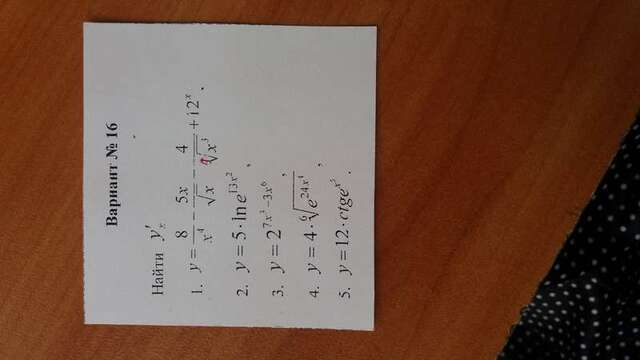 Вариант № 16
Найти y'ₓ
1. y = 8/x⁴ − 5x/√x − 4/∜x³ + 12ˣ.
2. y = 5·ln e^(13x²),
3. y = 2^(7x³−3x⁶),
4. y = 4·⁶√(e^(24x⁴)),
5. y = 12·ctge^(x⁵).